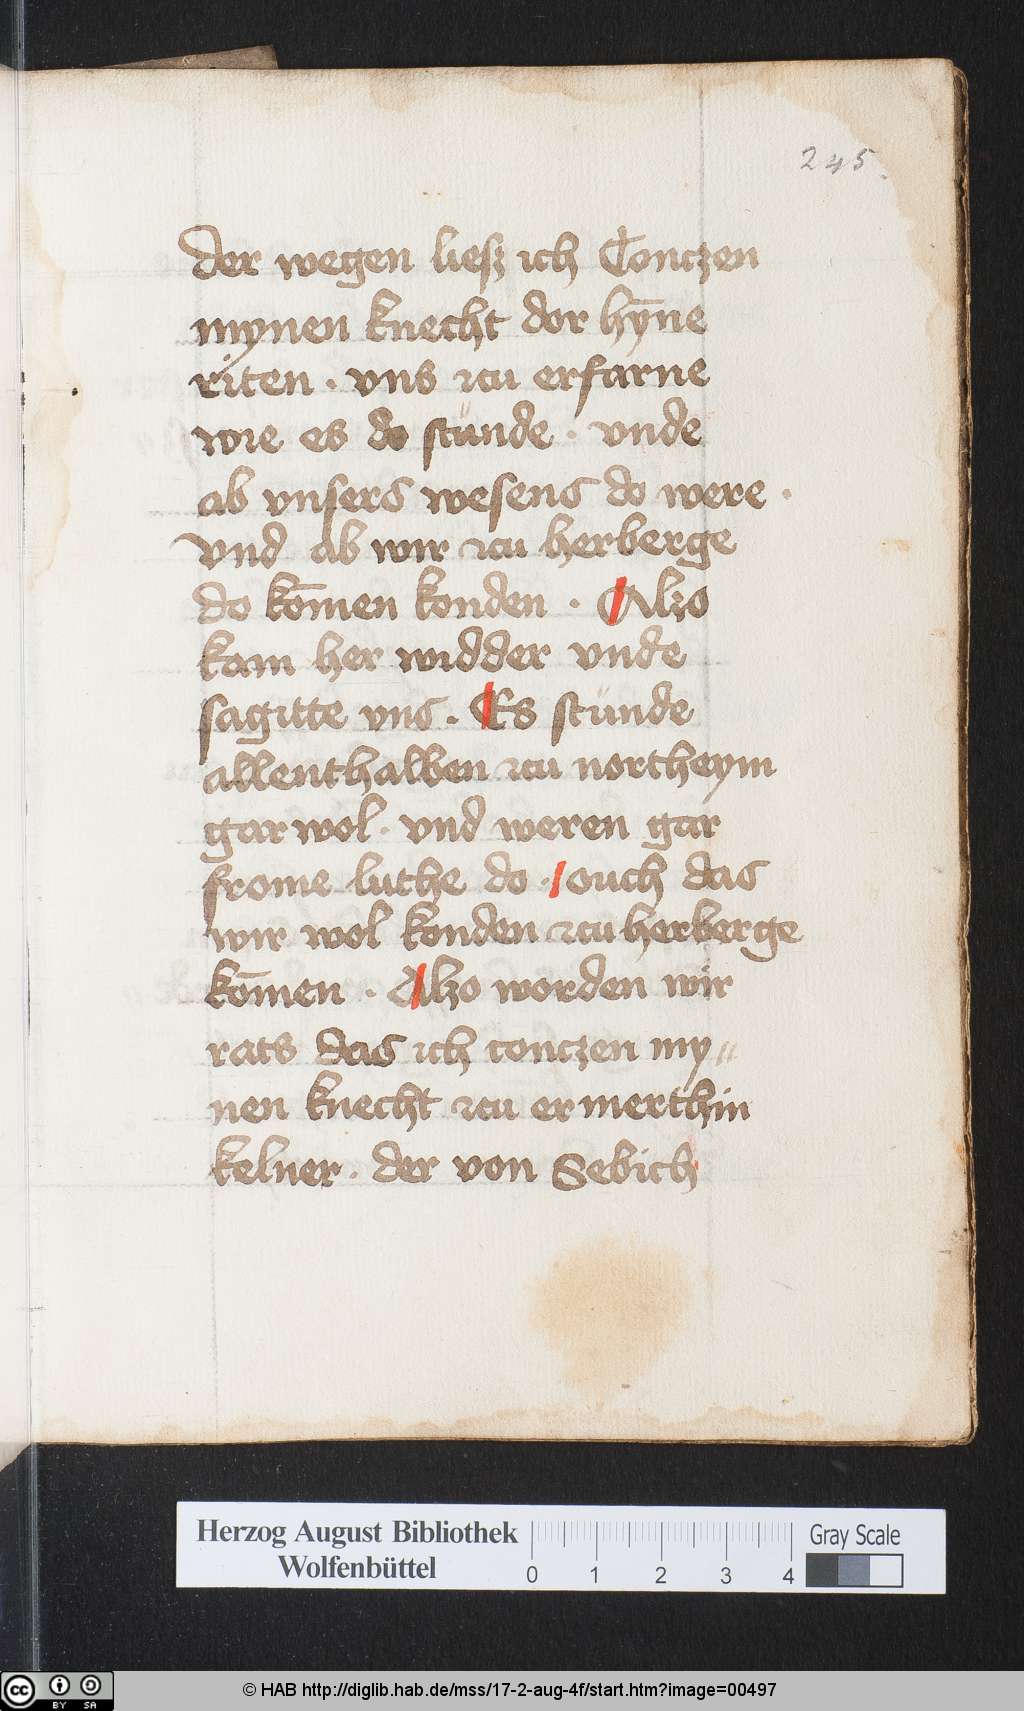 245.
der wegen liesz ich Conczen
mynen knecht dor hȳne
riten · vns zcu erfarne
wie es do stünde · vnde
ab vnsers wesens do were ·
vnd ab wir zcu herberge
do kōmen konden · Alzo
kam her widder vnde
sagitte vns · Es stünde
allenthalben zcu northeym
gar wol · vnd weren gar
frome luthe do · ouch das
wir wol konden zcu herberge
kōmen · Alzo worden wir
rats das ich conczen my〃
nen knecht zcu er merthin
kelner · der von Sebich
Herzog August Bibliothek
Wolfenbüttel
0 1 2 3 4
Gray Scale
cc BY SA
© HAB http://diglib.hab.de/mss/17-2-aug-4f/start.htm?image=00497